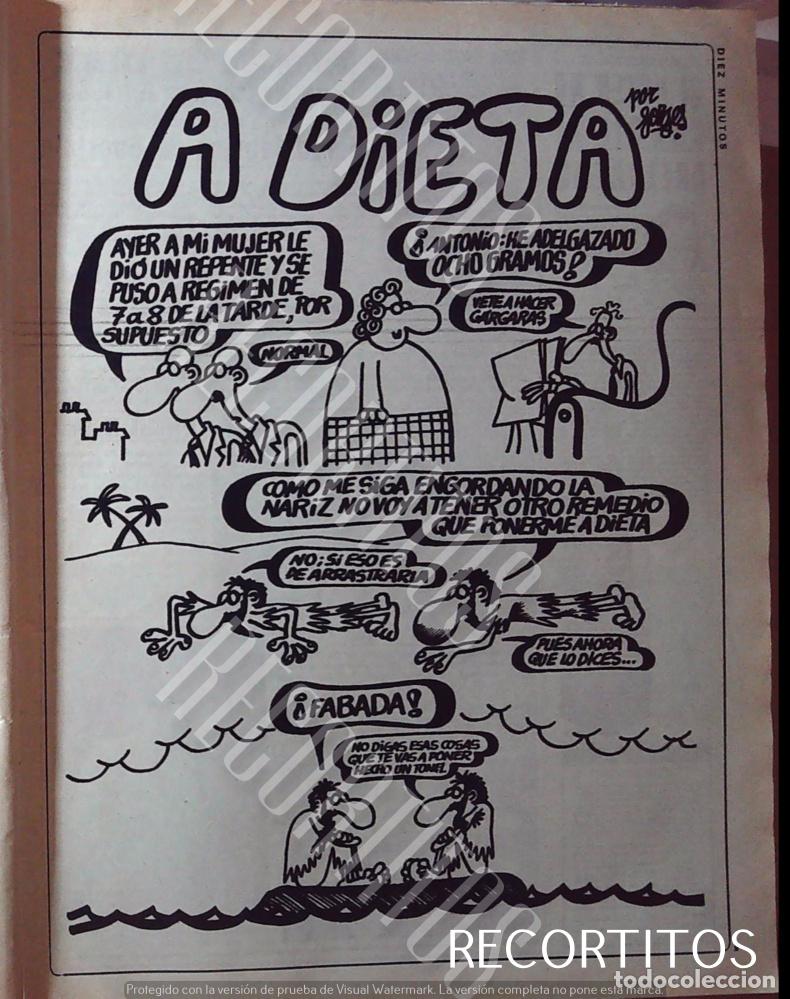 DIEZ MINUTOS
A DiETA
por
forges
AYER A Mi MUJER LE
DIÓ UN REPENTE Y SE
PUSO A REGIMEN DE
7 a 8 DE LA TARDE, POR
SUPUESTO
NORMAL
¡ANTONiO: HE ADELGAZADO
OCHO GRAMOS!
VETE A HACER
GARGARAS
COMO ME SiGA ENGORDANDO LA
NARiZ NO VOY A TENER OTRO REMEDIO
QUE PONERME A DiETA
NO; Si ESO ES
DE ARRASTRARIA
PUES AHORA
QUE LO DiCES...
¡FABADA!
NO DiGAS ESAS COSAS
QUE TE VAS A PONER
HECHO UN TONEL
RECORTITOS
RECORTITOS
RECORTITOS
RECORTITOS
todocoleccion
Protegido con la versión de prueba de Visual Watermark. La versión completa no pone esta marca.